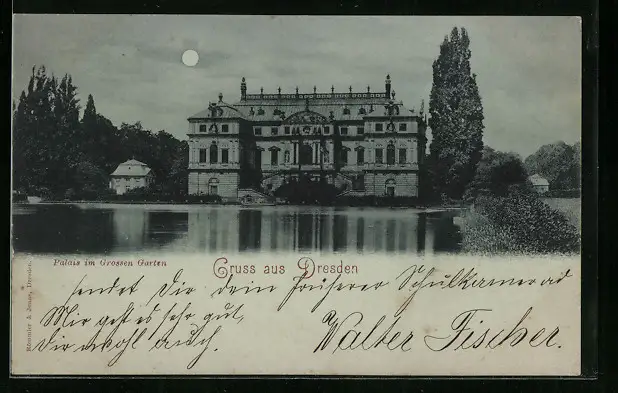 Palais im Grossen Garten
Gruss aus Dresden
sendet Dir dein früherer Schulkamerad
Mir geht es sehr gut,
Dir wohl auch.
Walter Fischer.
Römmler & Jonas, Dresden.